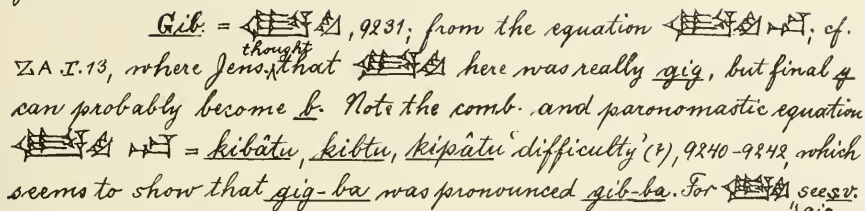 Gib = 𒈪𒍼, 9231; from the equation 𒈪𒍼 𒁀; cf.
ZA. I. 13, where Jens. thought that 𒈪𒍼 here was really gig, but final g
can probably become b. Note the comb. and paronomastic equation
𒈪𒍼 𒁀 = kibâtu, kibtu, kipâtu 'difficulty' (?), 9240-9242, which
seems to show that gig-ba was pronounced gib-ba. For 𒈪𒍼 see sv.
gig